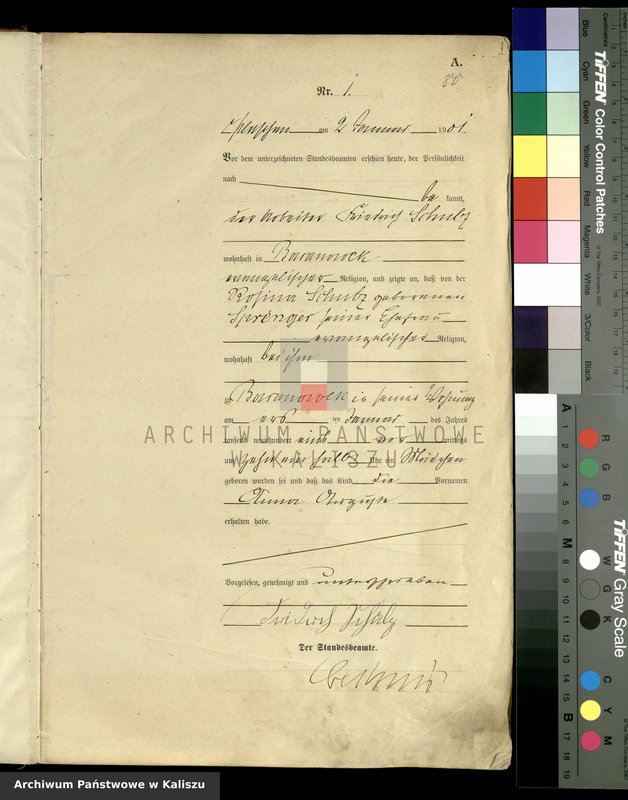 A.
80
Nr. 1.
am 2 Januar 1901.
Vor dem unterzeichneten Standesbeamten erschien heute, der Persönlichkeit
nach
be kannt,
der Arbeiter Friedrich Schulz
wohnhaft in Baranowek
evangelischer Religion, und zeigte an, daß von der
Rosina Schulz geborenen
Sprenger seiner Ehefrau
evangelischer Religion,
wohnhaft bei ihm
zu Baranowek in seiner Wohnung
am ersten Januar des Jahres
tausend neunhundert eins vor mittags
um zehn ein halb Uhr ein Mädchen
geboren worden sei und daß das Kind die Vornamen
Anna Auguste
erhalten habe.
Vorgelesen, genehmigt und unterschrieben
Friedrich Schulz
Der Standesbeamte.
ARCHIWUM PAŃSTWOWE
W KALISZU
Archiwum Państwowe w Kaliszu
Centimetres
TIFFEN Color Control Patches
© The Tiffen Company, 2007
Blue
Cyan
Green
Yellow
Red
Magenta
White
3/Color
Black
TIFFEN Gray Scale
© The Tiffen Company, 2007
A
1
2
3
4
5
6
M
8
9
10
11
12
13
14
15
B
17
18
19
R
G
B
W
G
K
C
Y
M